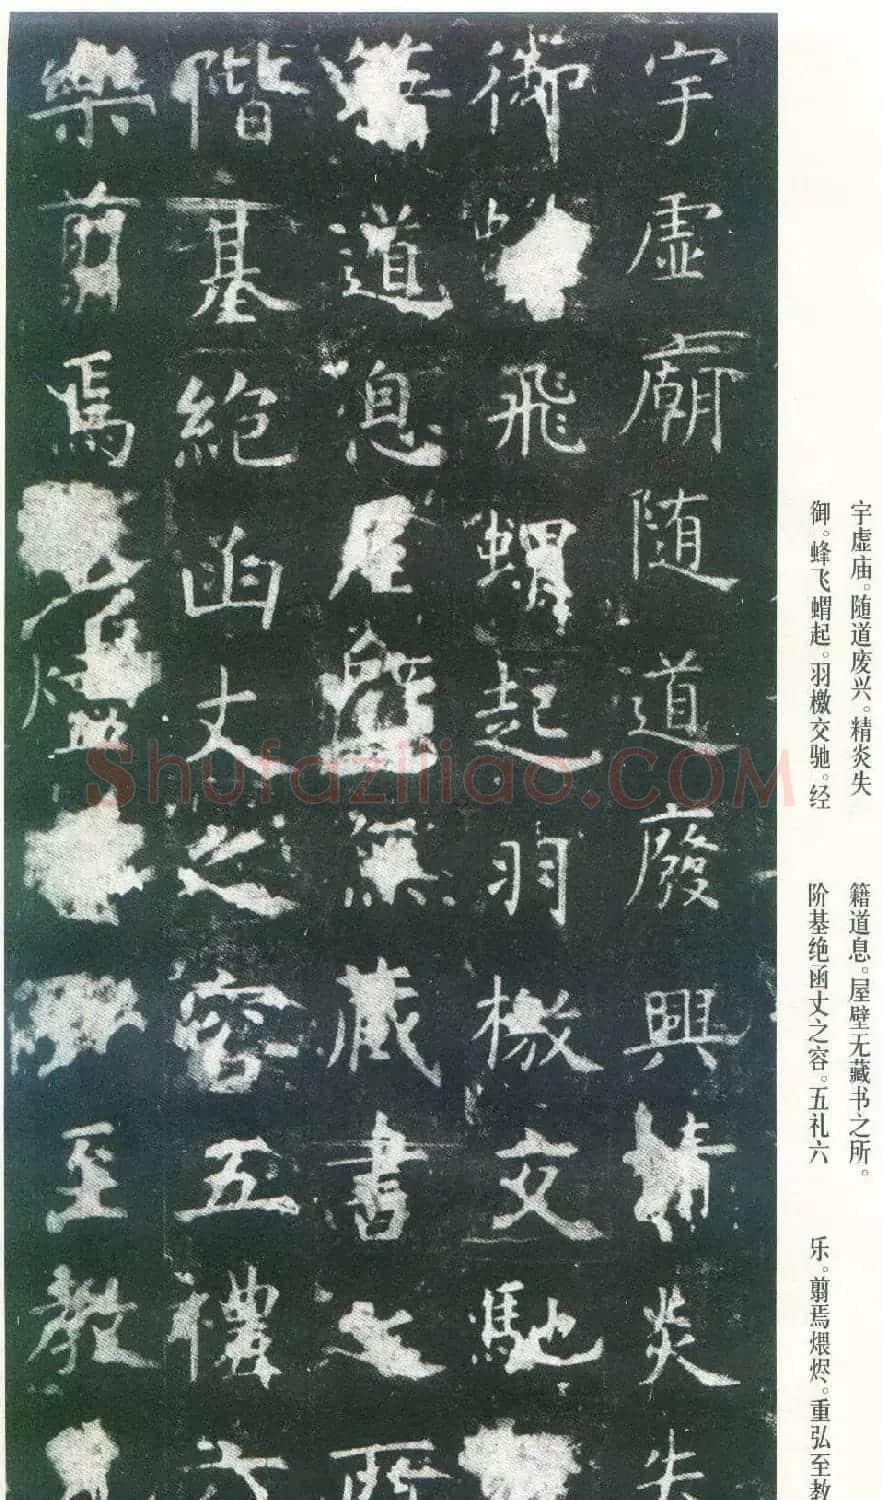 宇虚庙。随道废兴。精炎失
御。蜂飞蝟起。羽檄交驰。经
籍道息。屋壁无藏书之所。
阶基绝函丈之容。五礼六
乐。翦焉煨烬。重弘至教
宇虛廟随道廢興精炎失
御飛蝟起羽檄交馳
籍道息屋壁無藏書之所
階基絶函丈之容五禮六
樂翦焉至教
Shufaziliao.COM